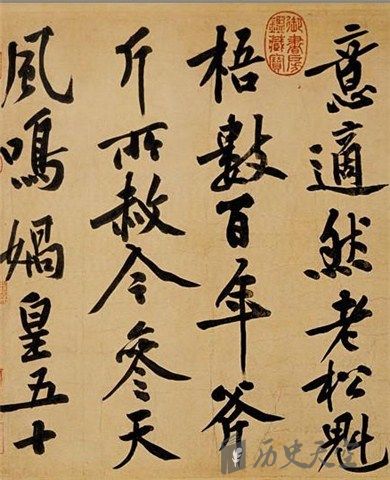 意適然老松魁
梧數百年斧
斤所赦今參天
風鳴媧皇五十
御書房鑑藏寶
历史